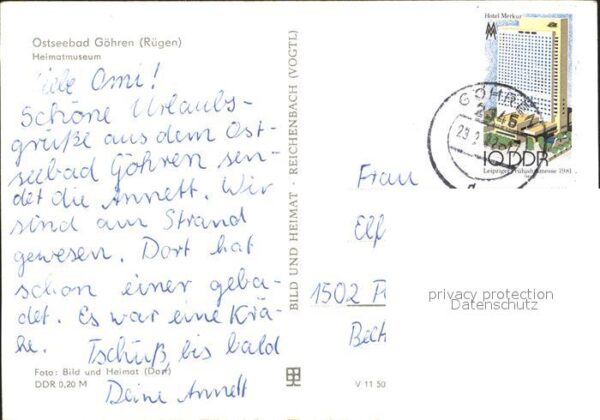 Ostseebad Göhren (Rügen)
Heimatmuseum
Liebe Omi!
Schöne Urlaubs-
grüße aus dem Ost-
seebad Göhren sen-
det die Annett. Wir
sind am Strand
gewesen. Dort hat
schon einer geba-
det. Es war eine Krä-
he. Tschüß, bis bald
Deine Annett
Foto: Bild und Heimat (Dorn)
DDR 0,20 M
BILD UND HEIMAT · REICHENBACH (VOGTL)
V 11 50
Hotel Merkur
10 DDR
Leipziger Frühjahrsmesse 1981
GÖHREN
2345
Frau
Elf
1502
privacy protection
Datenschutz